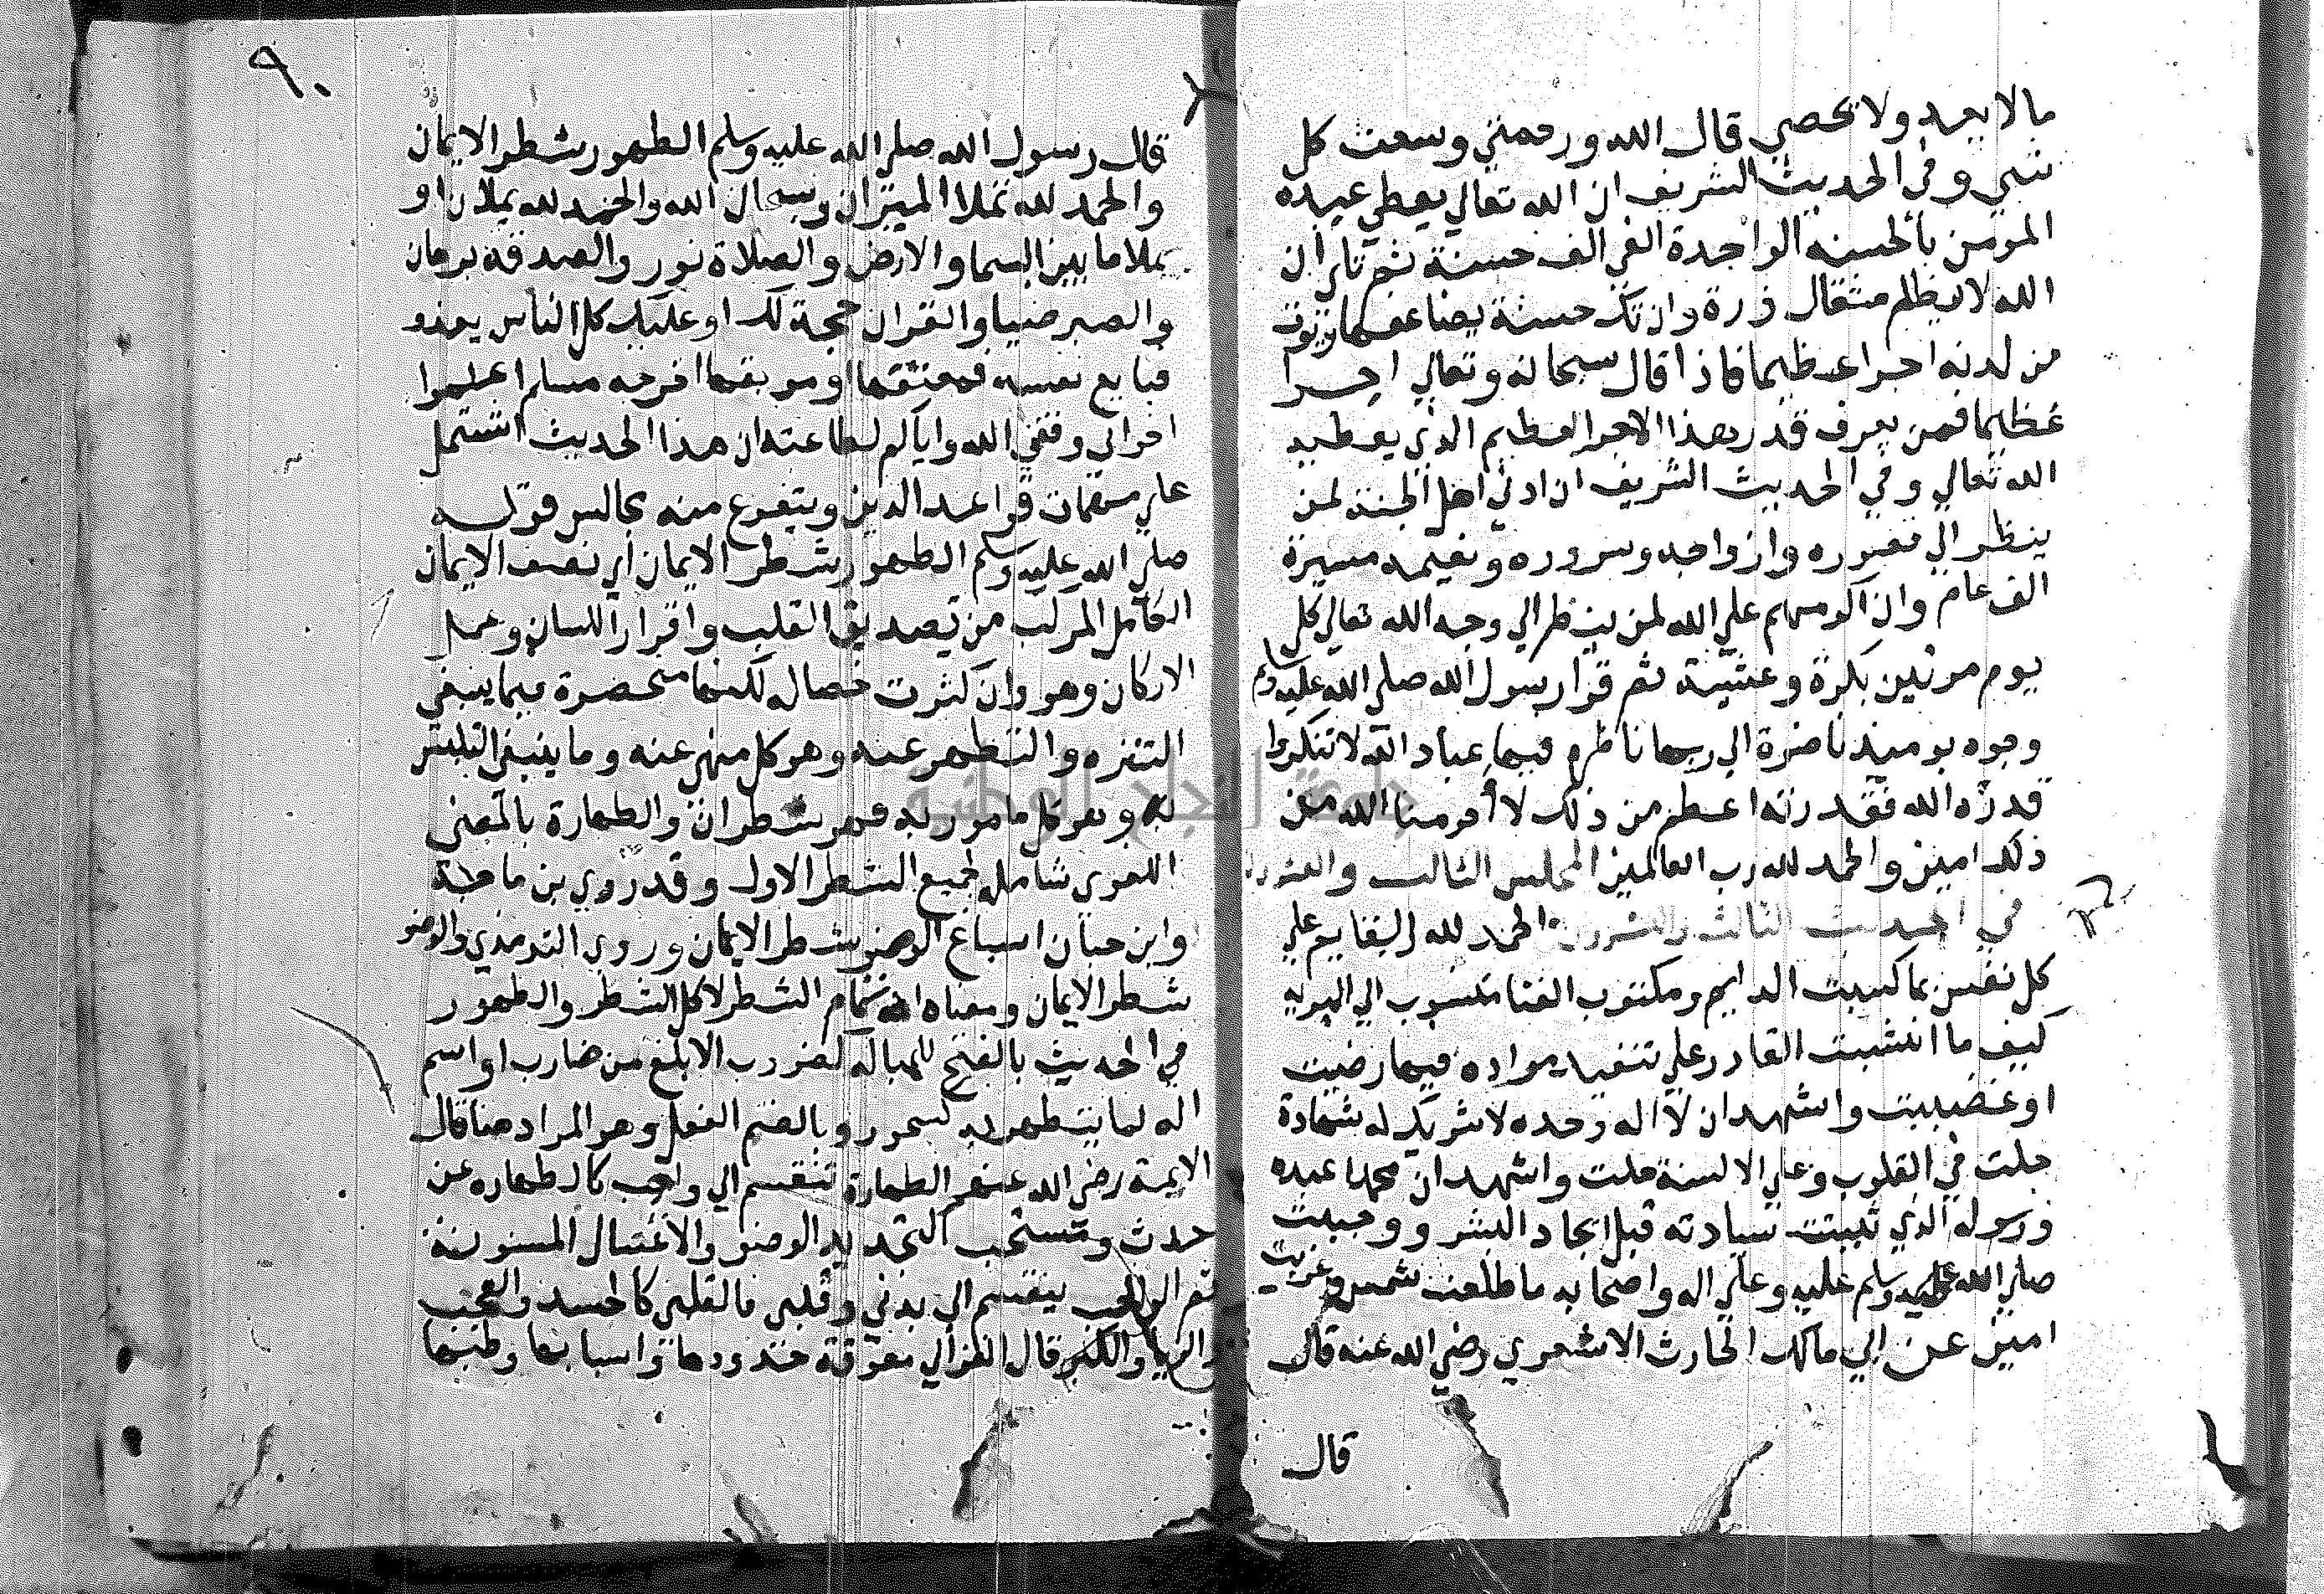 ما لا يعد ولا يحصي قال الله ورحمتي وسعت كل
شي وفي الحديث الشريف ان الله تعالي يعطي عبده
المومن بالحسنه الواحدة الفي الف حسنة ثم تلي ان
الله لا يظلم مثقال ذرة وان تك حسنة يضاعفها ويوت
من لدنه اجرا عظيما فاذا قال سبحانه وتعالي اجرا
عظيما فمن يعرف قدر هذا الاجر العظيم الذي يعطيه
الله تعالي وفي الحديث الشريف ان ادني اهل الجنة لمن
ينظر الي قصوره وازواجه وسروره ونعيمه مسيرة
الف عام وان اكرمهم علي الله لمن ينظر الي وجه الله تعالي كل
يوم مرتين بكرة وعشية ثم قرا رسول الله صلي الله عليه وسلم
وجوه يوميذ ناضرة الي ربها ناظره فيها عباد الله لا تنكروا
قدرة الله فقدرته اعظم من ذلك لا أحرمنا الله من
ذلك امين والحمد لله رب العالمين المجلس الثالث والعشرون
في الحديث الثالث والعشرون الحمد لله القايم علي
كل نفس بما كسبت الدايم ومكتوب الفنا منسوب الي البريه
كيف ما انتسبت القادر علي تنفيد مراده فيما رضيت
او غضبت واشهد ان لا اله وحده لا شريك له شهادة
حلت في القلوب وعلي الالسنة حلت واشهد ان محمدا عبده
ورسوله الذي ثبتت سيادته قبل ايجاد البشر ووجبت
صلي الله عليه وسلم عليه وعلي اله واصحابه ما طلعت شمس وغربت
امين عن ابي مالك الحارث الاشعري رضي الله عنه قال
قال
٩٠
قال رسول الله صلي الله عليه وسلم الطهور شطر الايمان
والحمد لله تملا الميزان وسبحان الله والحمد لله يملان او
يملا ما بين السما والارض والصلاة نور والصدقه برهان
والصبر ضيا والقران حجة لك او عليك كل الناس يغدو
فبايع نفسه فمعتقها او موبقها اخرجه مسلم اعلموا
اخواني وفقني الله واياكم لطاعته ان هذا الحديث اشتمل
علي مهمات قواعد الدين ويتفرع منه مجالس قوله
صلي الله عليه وسلم الطهور شطر الايمان اي نصف الايمان
الكامل المركب من تصديق القلب واقرار اللسان وعمل
الاركان وهو وان كثرت خصاله لكنها منحصرة فيما ينبغي
التنزه والتطهر عنه وهو كل منهي عنه وما ينبغي التلبس
به وهو كل مامور به فهو شطران والطهارة بالمعني
اللغوي شامله لجميع الشطر الاول وقد روي بن ماجة
وابن حبان اسباغ الوضو شطر الايمان وروي الترمذي والوضو
شطر الايمان ومعناه انه تمام الشطر لا كل الشطر والطهور
في الحديث بالفتح للمبالغه كضروب الابلغ من ضارب او اسم
اله لما يتطهر به كسحور وبالضم الفعل وهو المراد هنا قال
الايمة رضي الله عنهم الطهارة تنقسم الي واجب كالطهاره عن
حدث ومستحب كتجديد الوضو والاغتسال المسنونة
ثم الواجب ينقسم الي بدني وقلبي فالقلبي كالحسد والعجب
والريا والكبر قال الغزالي معرفة حدودها واسبابها وطبها
جامعة النجاح الوطنية